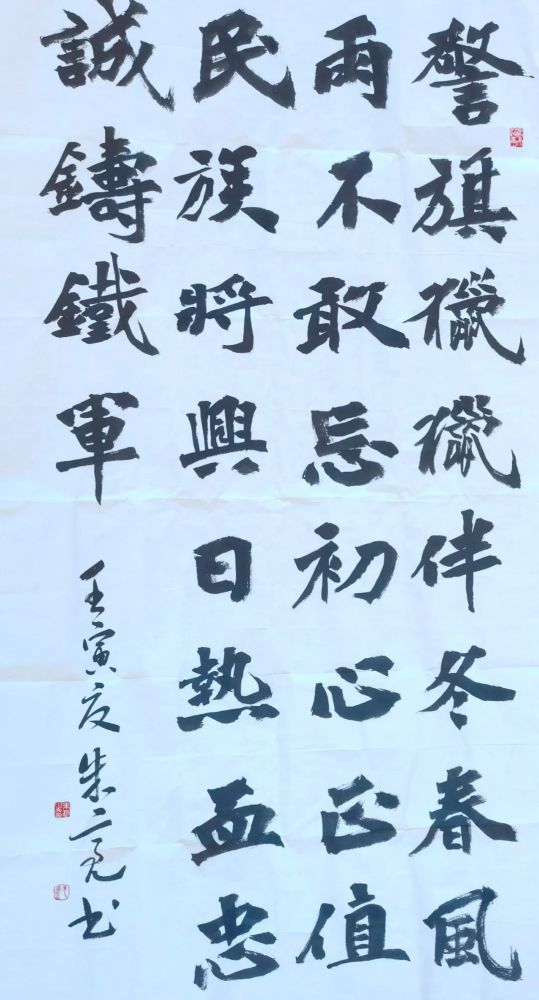 警旗獵獵伴冬春風
雨不敢忘初心正值
民族將興日熱血忠
誠鑄鐵軍
壬寅夏朱二亮书